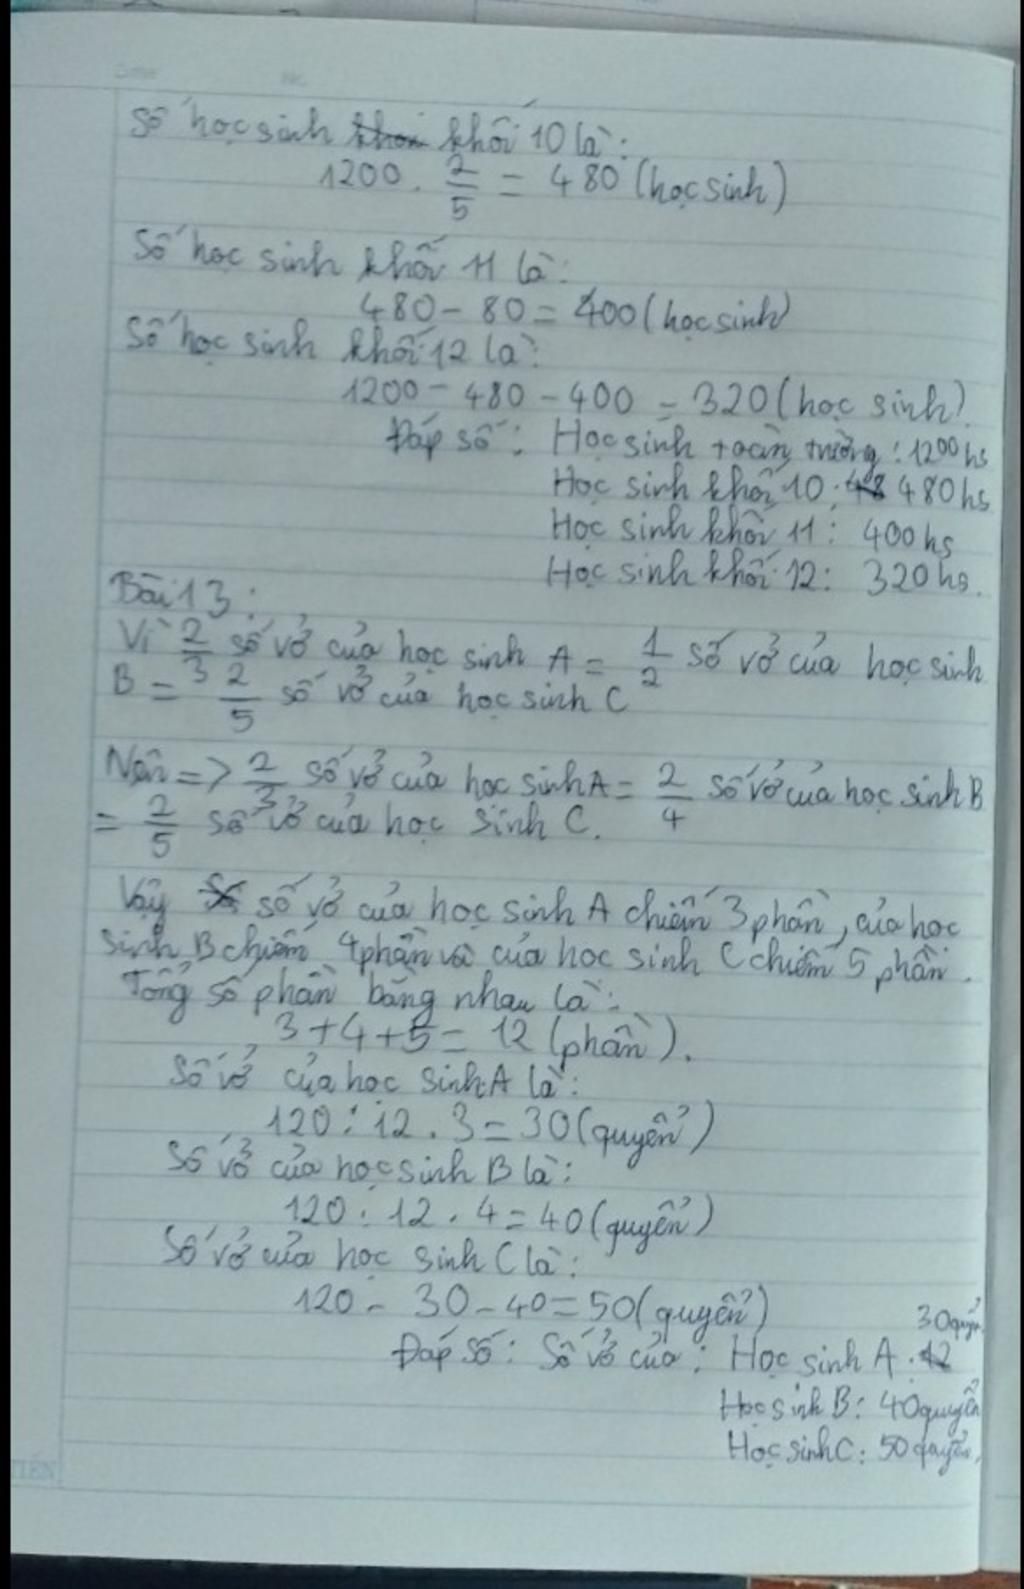 Số học sinh khối 10 là:
1200 . 2/5 = 480 (học sinh)
Số học sinh khối 11 là:
480 - 80 = 400 (học sinh)
Số học sinh khối 12 là:
1200 - 480 - 400 = 320 (học sinh)
Đáp số: Học sinh toàn trường: 1200 hs
Học sinh khối 10: 480 hs
Học sinh khối 11: 400 hs
Học sinh khối 12: 320 hs.
Bài 13:
Vì 2/3 số vở của học sinh A = 1/2 số vở của học sinh
B = 2/5 số vở của học sinh C
Nên => 2/3 số vở của học sinh A = 2/4 số vở của học sinh B
= 2/5 số vở của học sinh C.
Vậy số vở của học sinh A chiếm 3 phần, của học
sinh B chiếm 4 phần và của học sinh C chiếm 5 phần.
Tổng số phần bằng nhau là:
3 + 4 + 5 = 12 (phần).
Số vở của học sinh A là:
120 : 12 . 3 = 30 (quyển)
Số vở của học sinh B là:
120 : 12 . 4 = 40 (quyển)
Số vở của học sinh C là:
120 - 30 - 40 = 50 (quyển)
30 quyển
Đáp số: Số vở của: Học sinh A:
Học sinh B: 40 quyển
Học sinh C: 50 quyển.
TIẾN